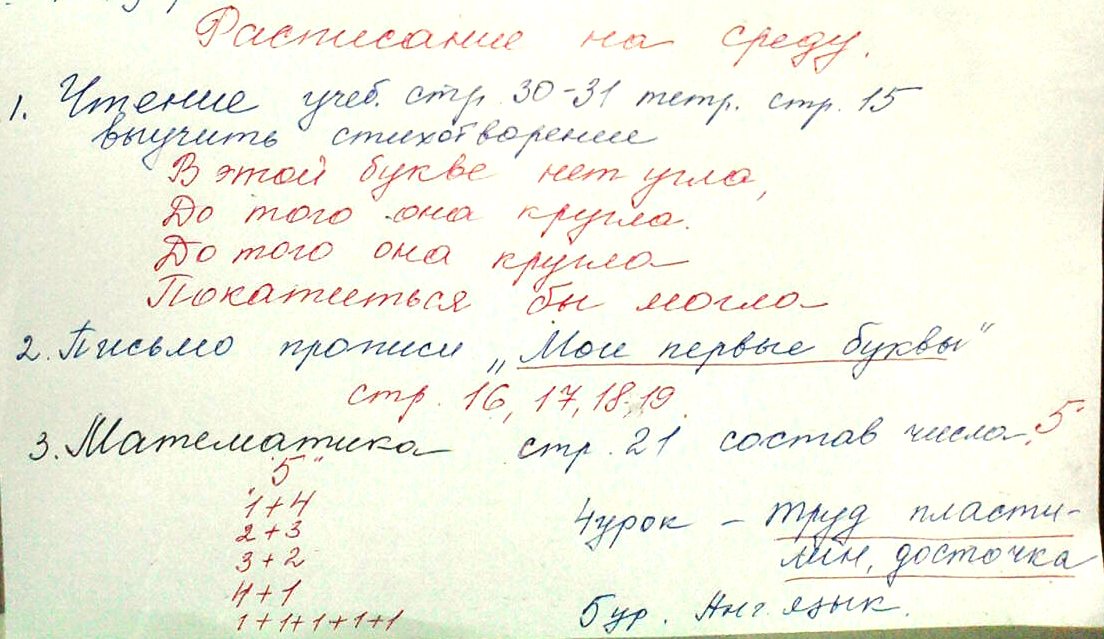 Расписание на среду.
1. Чтение учеб. стр 30-31 тетр. стр. 15
выучить стихотворение
В этой букве нет угла,
До того она кругла.
До того она кругла
Покатиться бы могла
2. Письмо прописи „Мои первые буквы"
стр. 16, 17, 18, 19.
3. Математика стр. 21 состав числа „5"
„5"
1+4
2+3
3+2
4+1
1+1+1+1+1
4 урок – труд пласти-
лин, досточка
5 ур. Анг. язык.